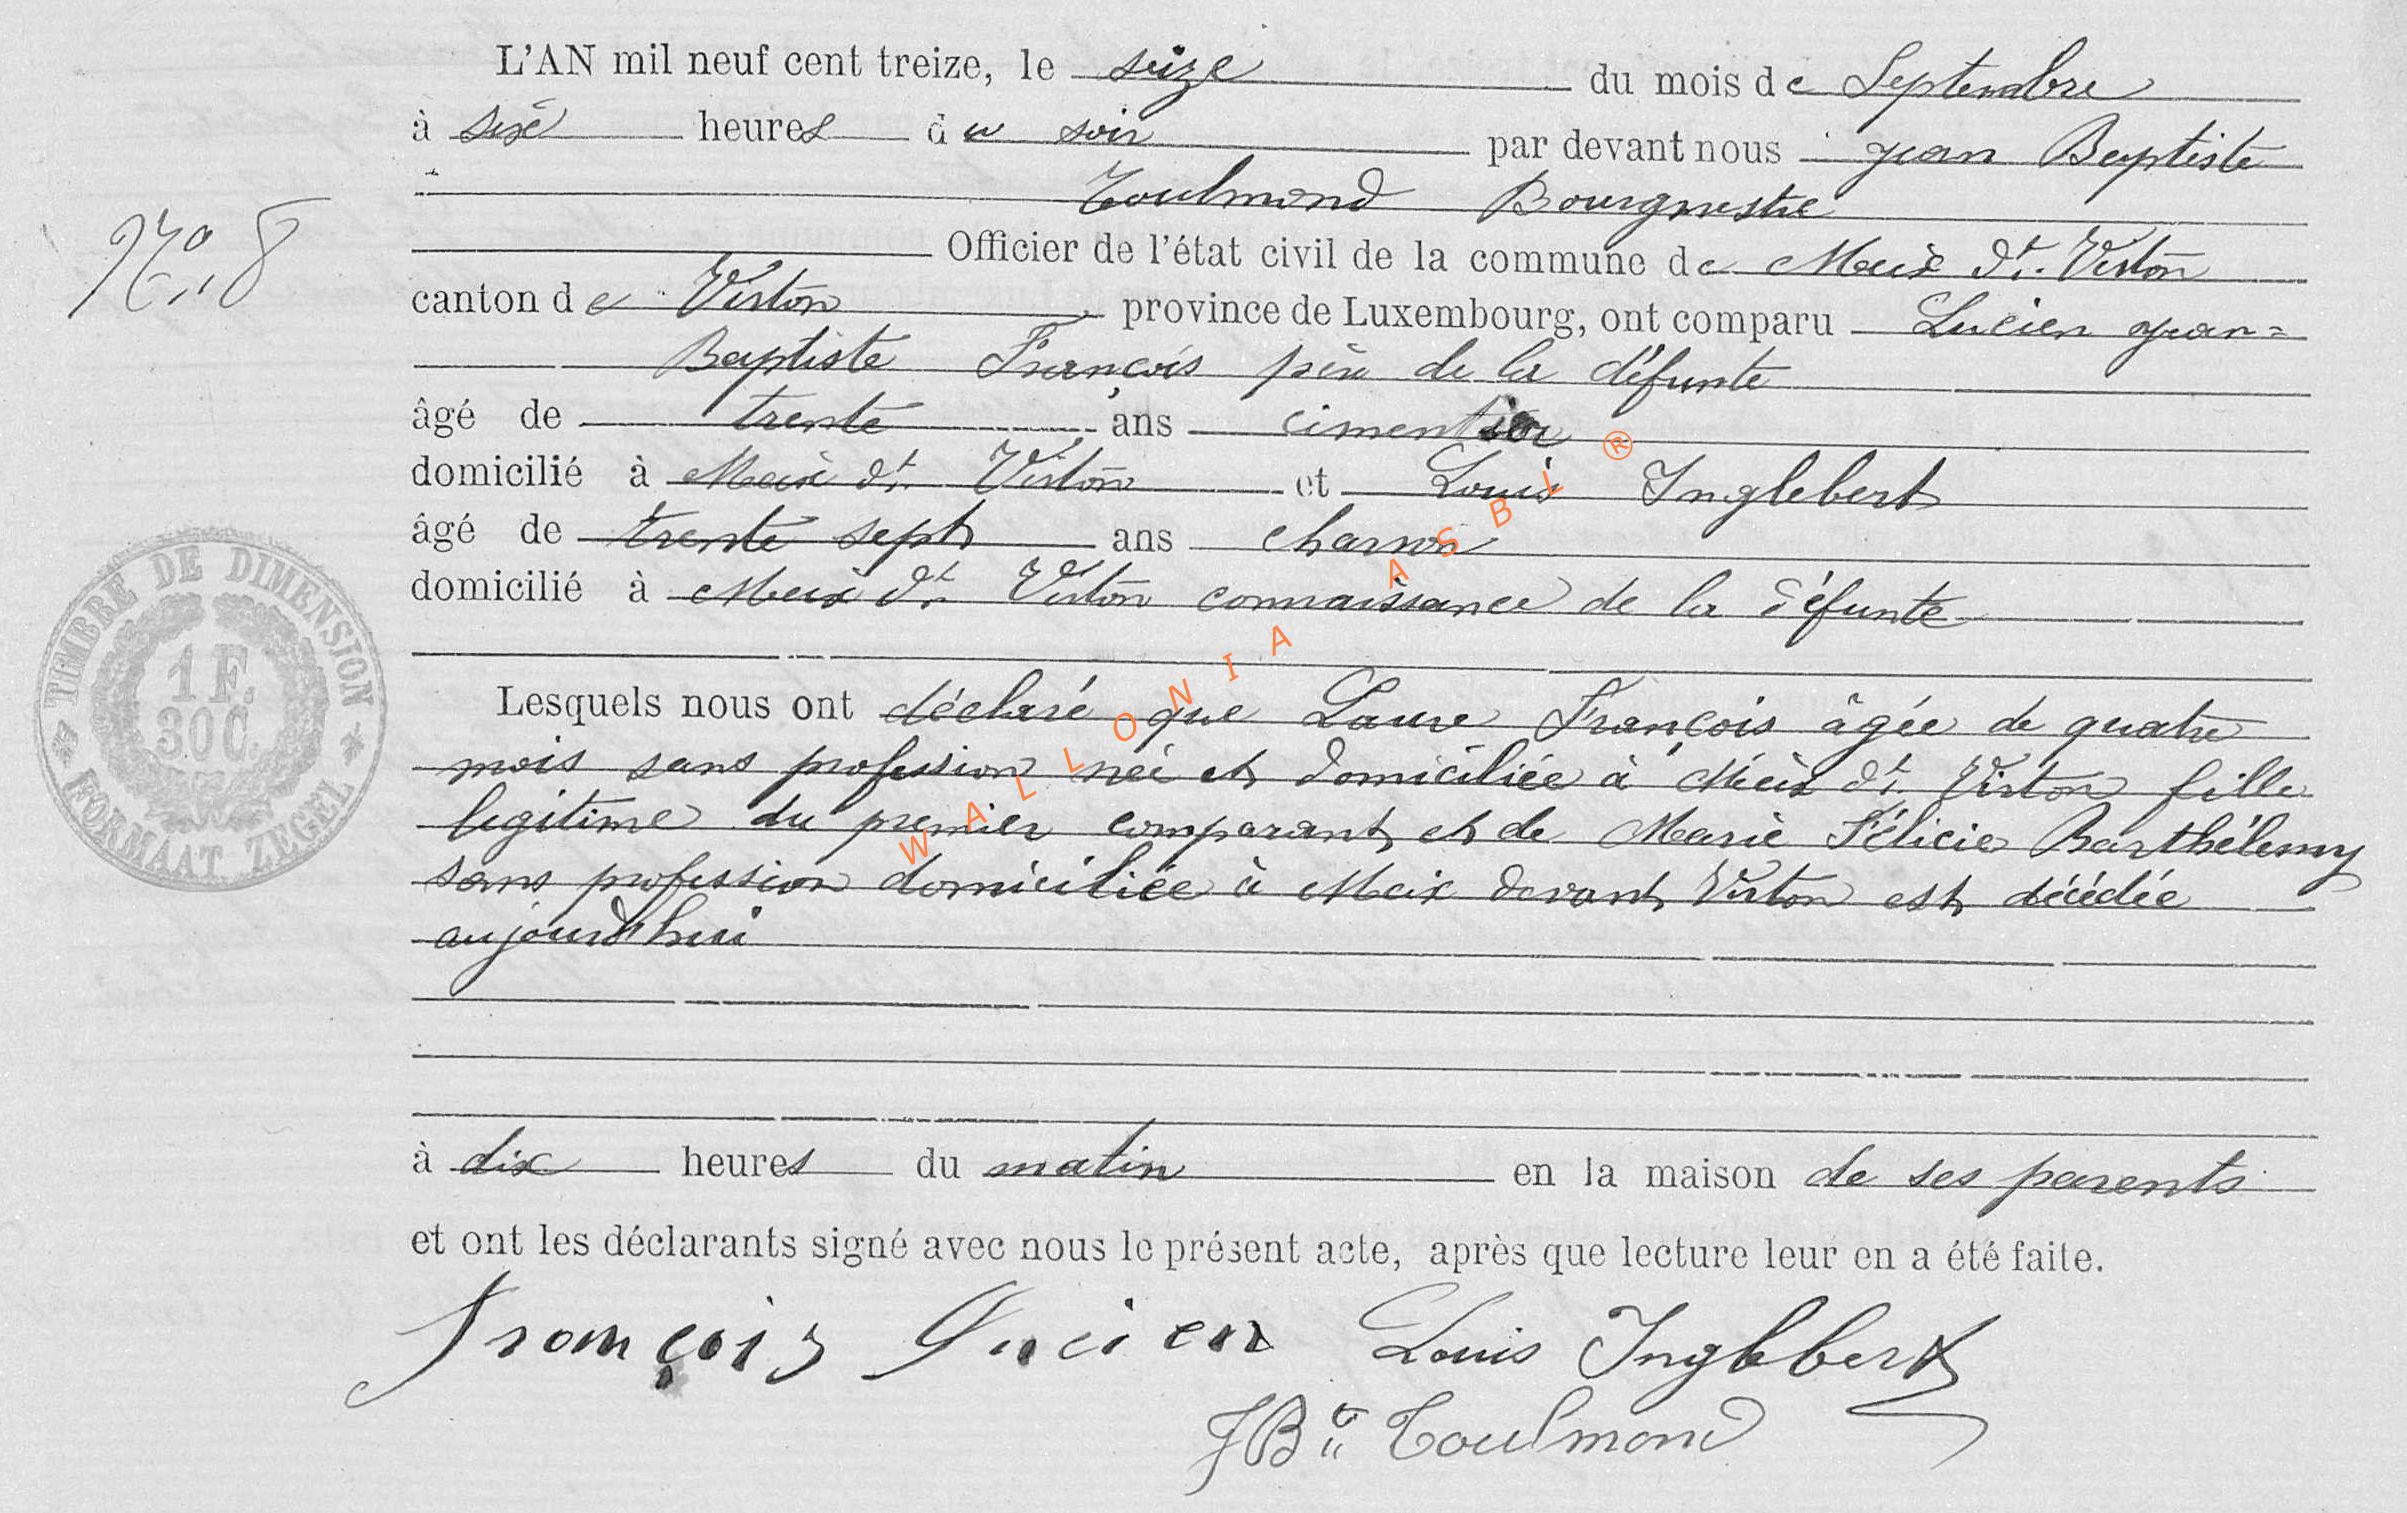 L'AN mil neuf cent treize, le seize du mois de Septembre
à six heures du soir par devant nous Jean Baptiste
Toulmond Bourgmestre
N°. 8
Officier de l'état civil de la commune de Meix dt. Virton
canton de Virton province de Luxembourg, ont comparu Lucien Jean=
Baptiste François père de la défunte
âgé de trente ans cimentier
domicilié à Meix dt. Virton et Louis Inglebert
âgé de trente sept ans charron
domicilié à Meix dt. Virton connaissance de la défunte
Lesquels nous ont déclaré que Laure François âgée de quatre
mois sans profession née et domiciliée à Meix dt. Virton fille
legitime du premier comparant et de Marie Félicie Barthélemy
sans profession domiciliée à Meix devant Virton est décédée
aujourd'hui
à dix heures du matin en la maison de ses parents
et ont les déclarants signé avec nous le présent acte, après que lecture leur en a été faite.
François Lucien Louis Inglebert
JBte Toulmond
TIMBRE DE DIMENSION
1 F.
30 C.
FORMAAT ZEGEL
WALLONIA ASBL ®